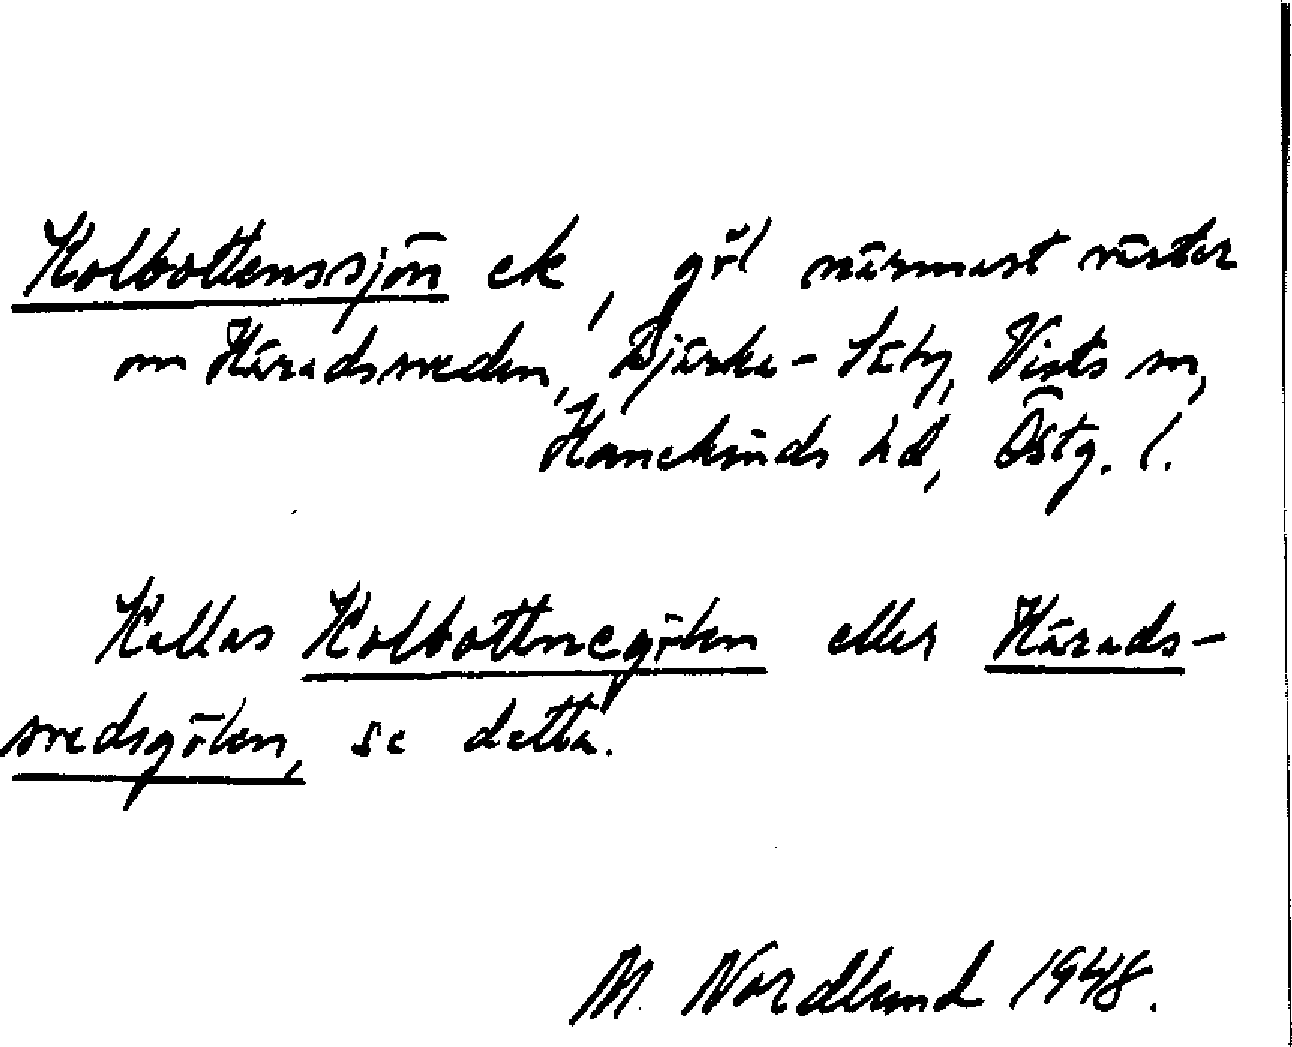 Kolbottenssjön ek, göl närmast väster
om Häradssveden, Bjärka-Säby, Vists sn,
Hanekinds hd, Östg. l.
Kallas Kolbottnegölen eller Härads-
svedsgölen, se detta.
M. Nordlund 1948.